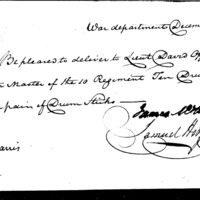 War department Decem
Be pleased to deliver to Lieut David
Master of the 10 Regiment Ten
pairs of Drum Sticks
James
Samuel
arris